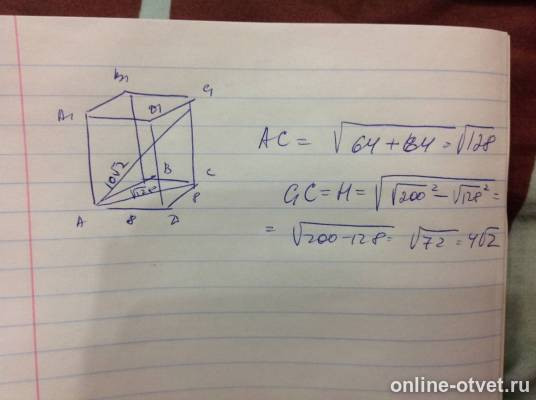 B₁
C₁
A₁
D₁
10√2
B
C
√128
8
A
8
D
AC = √64+64 = √128
C₁C=H=√√200² – √128² =
= √200-128 = √72 = 4√2
online-otvet.ru